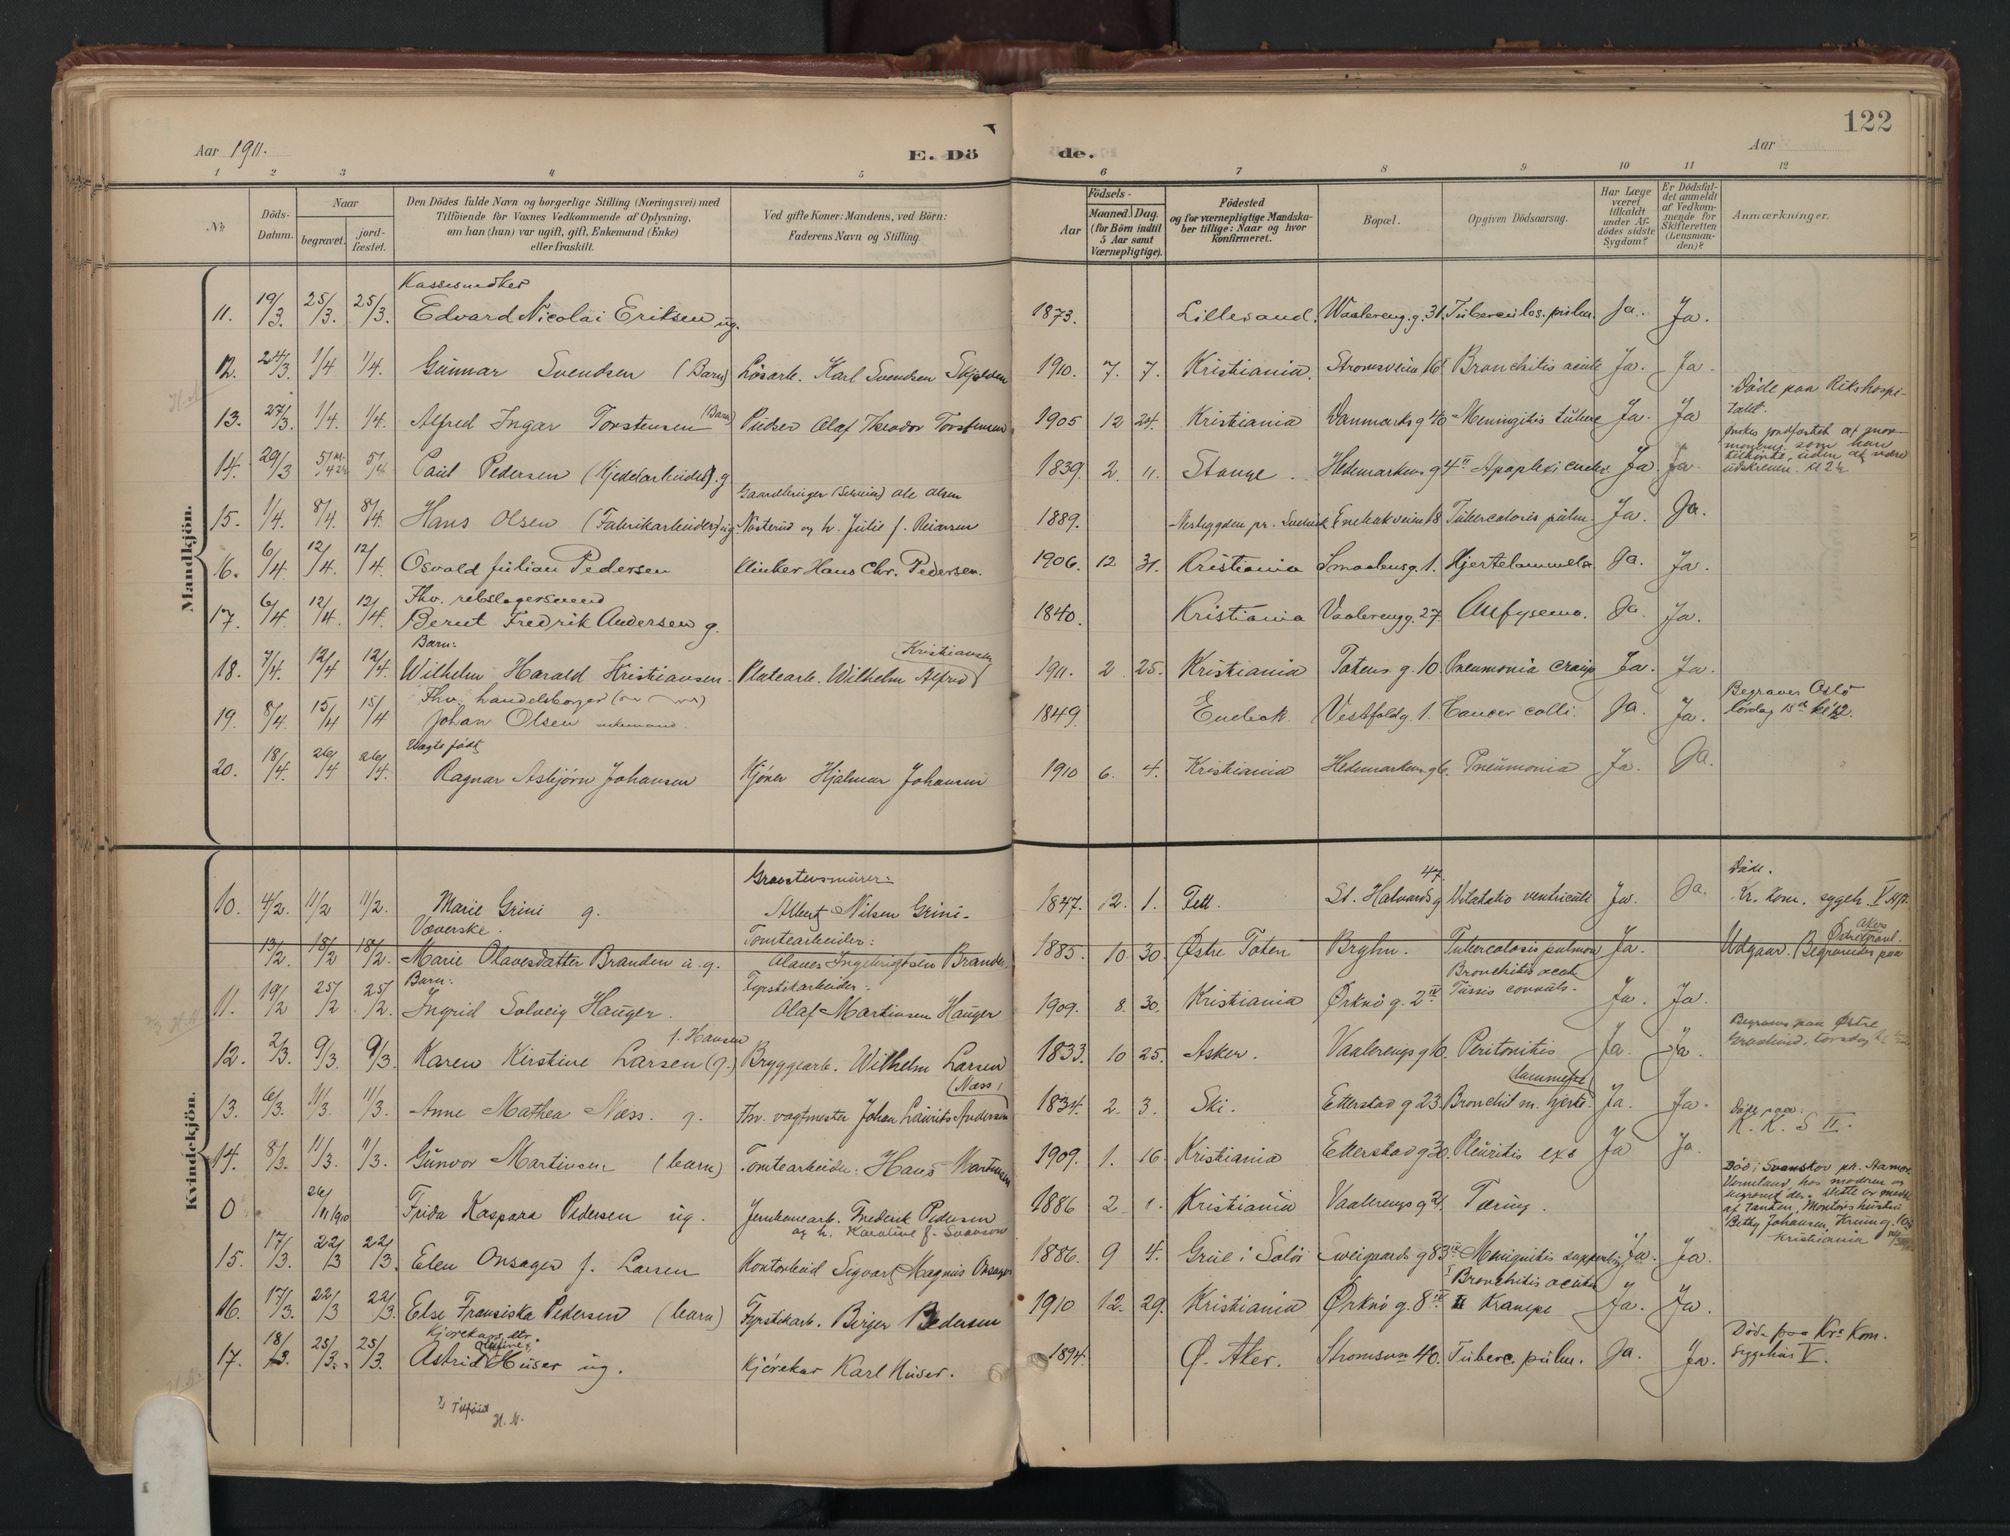 122
Aar 1911.
E. Dö
de.
Aar
1 2 3 4 5 6 7 8 9 10 11 12
№
Döds-Datum.
Naar
begravet.
jord-fæstet.
Den Dödes fulde Navn og borgerlige Stilling (Næringsvei) med
Tilföiende for Voxnes Vedkommende af Oplysning,
om han (hun) var ugift, gift, Enkemand (Enke)
eller fraskilt.
Ved gifte Koner: Mandens, ved Börn:
Faderens Navn og Stilling.
Födsels-
Aar
Maaned. Dag.
(for Börn indtil
5 Aar samt
Værnepligtige).
Födested
og for værnepligtige Mandska-
ber tillige: Naar og hvor
konfirmeret.
Bopæl.
Opgiven Dödsaarsag.
Har Læge
været
tilkaldt
under Af-
dödes sidste
Sygdom?
Er Dödsfal-
det anmeldt
af Vedkom-
mende for
Skifteretten
(Lensman-
den)?
Anmærkninger.
Mandkjön.
Kassesnedker
11. 19/3 25/3. 25/3. Edvard Nicolai Eriksen ug. 1873. Lillesand. Vaalereng.g. 31. Tuberculos. pulm. Ja. Ja.
12. 24/3 1/4 1/4. Gunnar Svendsen (Barn) Løsarb. Karl Svendsen 1910. 7. 7. Kristiania. Bronchitis acute Ja. Ja.
Døde paa Rikshospi-
talet.
13. 27/3. 1/4. 1/4. Alfred Ingar Torstensen (Barn) Pudser Olaf Theodor Torstensen 1905 12 24. Kristiania Danmarks g 40 Meningitis tuberc Ja. Ja
14. 29/3 5/4 Paul Pedersen (Kjedelarbeider) g 1839. 2. 11. Stange. Hedemarkens g 4 II Apoplexi cerebr Ja Ja
som han
uden at være
udskreven. Kl 2½
Gaardbruger Ole Olsen
15. 1/4. 8/4. 8/4. Hans Olsen (Fabrikarbeider) ug. 1889. Enebakveien 18 Tuberculosis pulm. Ja. Ja.
16. 6/4. 12/4. 12/4. Osvald Julian Pedersen Klinker Hans Chr. Pedersen. 1906. 12 31. Kristiania Smaalensg. 1. Hjertelammelse Ja. Ja.
Fhv. rebslagersvend
17. 6/4. 12/4. 12/4. Bernt Fredrik Andersen g. 1840. Kristiania Vaalerengg. 27 Emfysema. Ja. Ja.
Barn:
Kristiansen
18. 7/4. 12/4 12/4. Wilhelm Harald Kristiansen. Platearb. Wilhelm Alfred 1911. 2 25. Kristiania Totens g. 10. Pneumonia croup Ja. Ja.
Fhv. handelsborger
Begraves Oslo
19. 8/4. 15/4 15/4 Johan Olsen enkemand. 1849. Enebak. Vestfoldg. 1. Cancer colli. Ja. Ja. lørdag 15de kl 12.
Uægte født
20. 18/4. 26/4 26/4. Ragnar Asbjørn Johansen Kjører Hjalmar Johansen 1910 6. 4. Kristiania Hedemarkens g 6. Pneumonia Ja. Ja.
Kvindekjön.
Graastensmurer:
47.
Døde.
10. 4/2. 11/2 11/2. Marie Grini g. Albert Nilsen Grini. 1847. 12. 1. Fet. St. Halvards g Dilatatio ventriculi Ja. Ja. Kr. kom. sygeh. V
Væverske. Tomtearbeider:
13/2 18/2 18/2. Marie Olavesdatter Branden u. g. Olaves Ingebrigtsen Branden. 1885. 10 30. Østre Toten Bryhn. Tuberculosis pulmon Ja. Udgaar. Begravedes paa
Barn: Fyrstikarbeider. Bronchitis acut.
11. 19/2 25/2 25/2. Ingrid Solveig Hauger. Olaf Martinsen Hauger 1909. 8. 30. Kristiania Ørknø g. 2 IV Tussis convuls. Ja. Ja.
f. Hansen
Begraves paa Østre
12. 2/3. 9/3 9/3. Karen Kirstine Larsen (g.) Bryggearb. Wilhelm Larsen 1833. 10 25. Asker. Vaalerengs g 10. Peritonitis Ja. Ja.
(Næss)
(lammelse)
13. 6/3. 11/3. 11/3. Anne Mathea Næss. g. Fhv. vagtmester Johan Laurits Andersen 1834. 2. 3. Ski. Etterstad g 23. Bronchit m. hjerte Ja. Ja.
Døde paa:
K. K. S II.
14. 8/3. 11/3. 11/3. Gunvor Martinsen (barn) Tomtearbeider. Hans Martinsen 1909. 1. 16. Kristiania Etterstad g 30. Pleuritis exs Ja Ja.
0 26/11 1910 Frida Kaspara Pedersen ug. Jernbanearb. Frederik Pedersen 1886 2 1. Kristiania Vaalerengs g 21. Tæring.
og h. Karoline f. Svanson
Død i Svanskov pr. Åamot
Vermland, hos moderen og
begravet der.
af tanten, Montørs hustru
Betsy Johansen,
Kristiania
15. 17/3. 22/3 22/3. Elen Onsager f. Larsen Kontorbud Sigvart Magnus Onsager 1886. 9 4. Grue i Solør Sveigaards g 83 Meningitis Ja. Ja.
I Bronchitis acuta
16. 17/3. 22/3 22/3. Else Fransiska Pedersen (barn) Fyrstikarb. Birger Pedersen 1910 12. 29. Kristiania Ørknø g. 8 II Krampe Ja. Ja.
Kjørekars dtr.
Døde paa Krs Kom.
17. 18/3. 25/3. 25/3. Astrid Huser ug. Kjørekar Karl Huser. 1894. Ø. Aker. 40. Tuberc. pulm. Ja. Ja. sygehus V.
H. N.